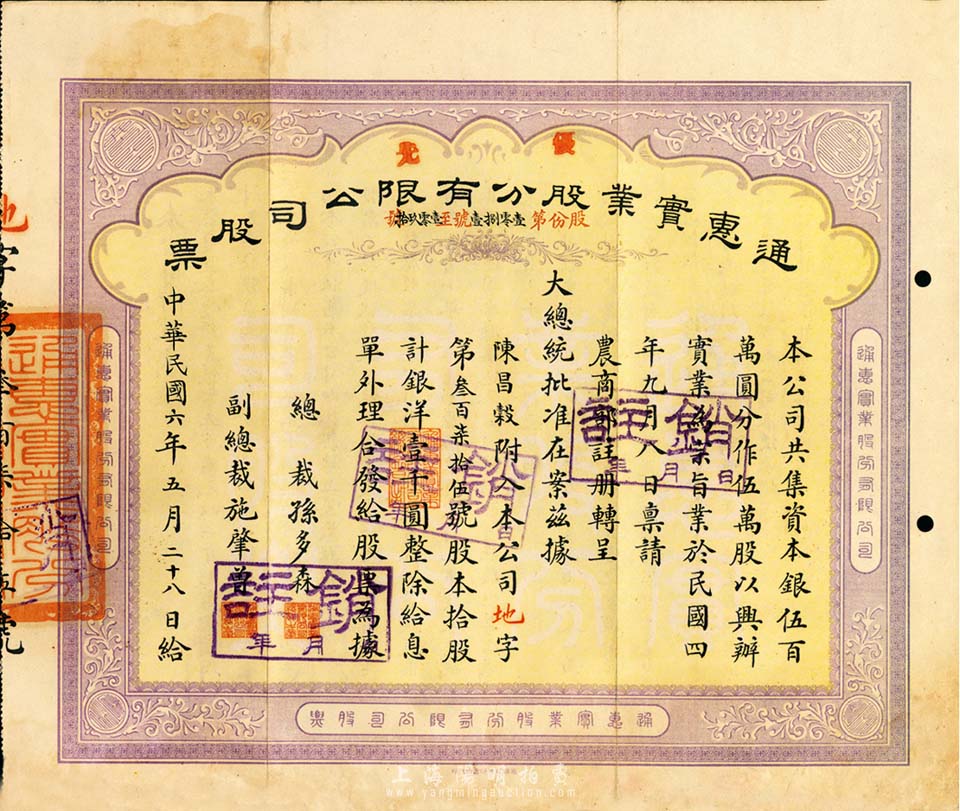 優先
通惠實業股分有限公司股票
股份第壹零捌壹號至壹零玖拾號
本公司共集資本銀伍百
萬圓分作伍萬股以興辦
實業為宗旨業於民國四
年九月八日稟請
農商部註册轉呈
大總統批准在案茲據
陳昌穀附入本公司地字
第叁百柒拾伍號股本拾股
計銀洋壹千圓整除給息
單外理合發給股票為據
總裁孫多森
副總裁施肇曾
中華民國六年五月二十八日給
註銷
年月日
註銷
年月
地字第叁百柒拾伍號
通惠實業股份有限公司
通惠實業股份有限公司
通惠實業股份有限公司股票
上海陽明拍賣
www.yangmingauction.com